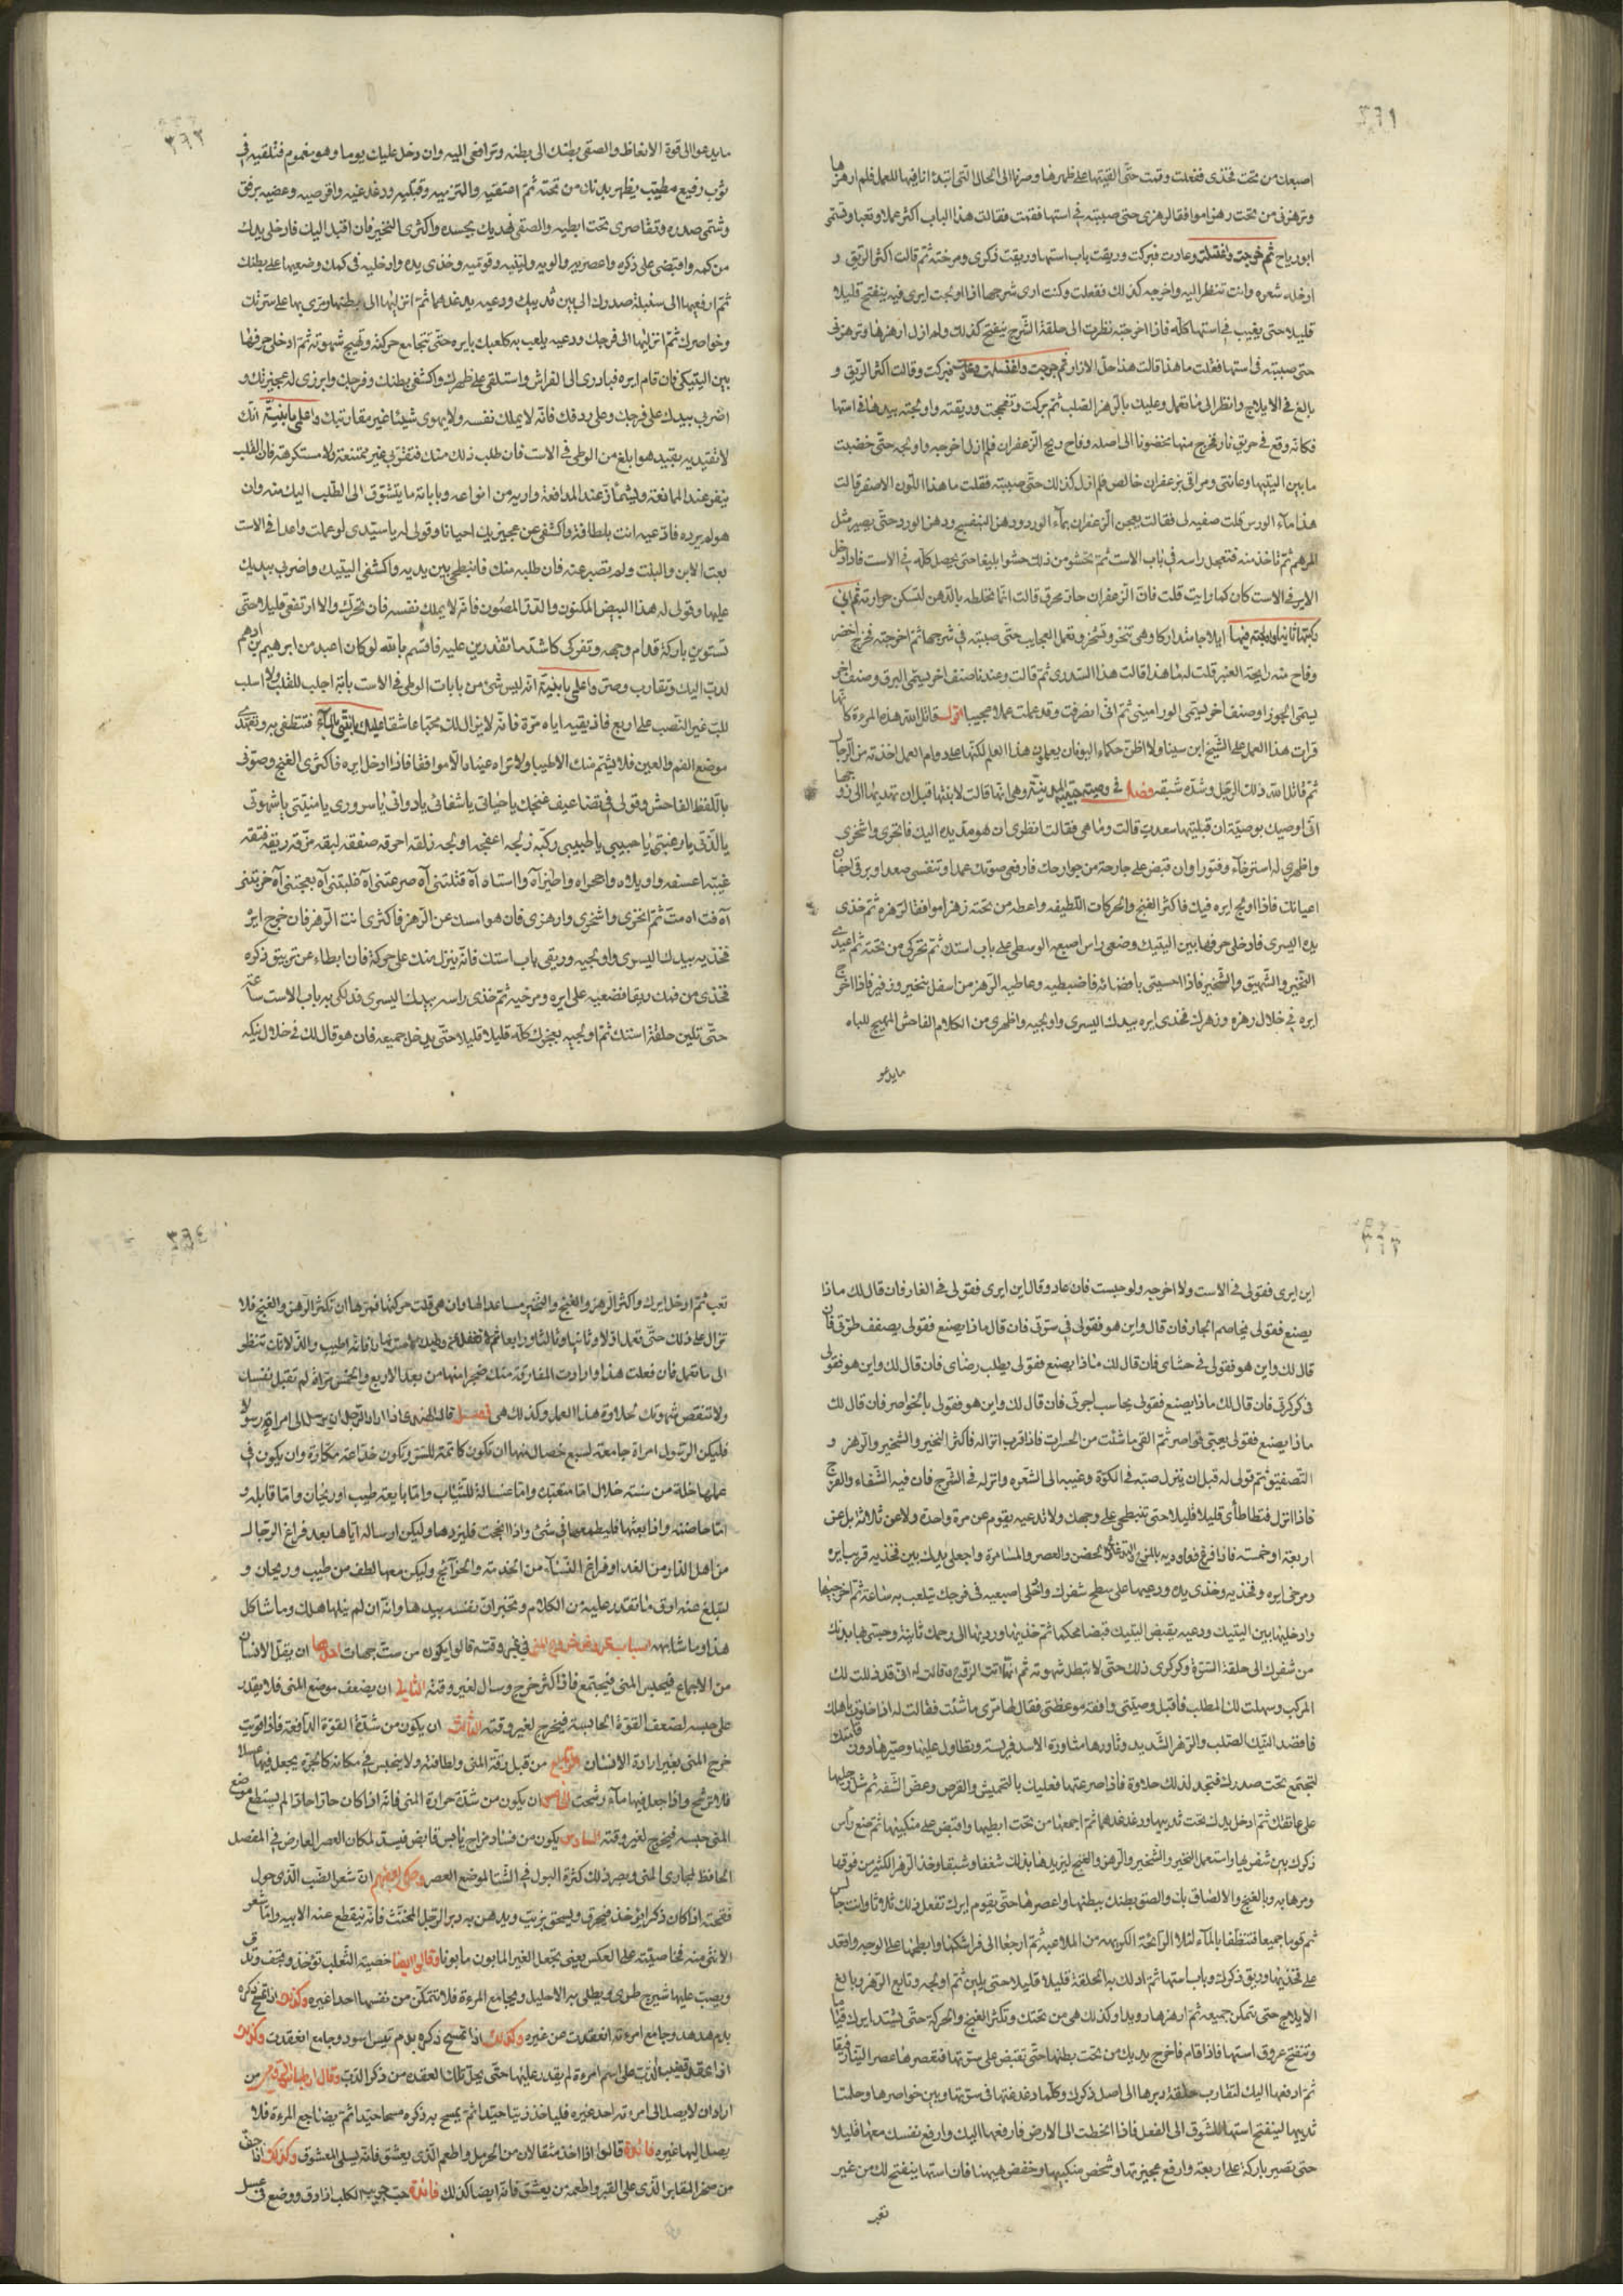 ٣٦١
اصبعك من تحت فخذى ففعلت وقمت حتى القيتها على ظهرها وصرنا الى الحال التى ابتدا نا فيها للعمل فلم ارهزها
وترهزنى من تحت رهزا موافقا لرهزى حتى صببته فى استها فقمت فقالت هذا الباب اكثر عملا وتعبا وتسمى
ابو رياح ثم خرجت واغتسلت وعادت فبركت وريقت باب استها وريقت ذكرى ومرخته ثم قالت اكثر الريق و
ادخله شعره وانت تنظر اليه واخرجه كذلك ففعلت وكنت ارى شرجها اذا اولجت ايرى فيه ينفتح قليلا
قليلا حتى يغيب فى استها كله فاذا اخرجته نظرت الى حلقة الشرج ينفتح كذلك ولم ازل ارهزها وترهزنى
حتى صببته فى استها فقلت ما هذا قالت هذا حل الازار ثم خرجت واغتسلت وعادت فبركت وقالت اكثر الريق و
بالغ فى الايلاج وانظر الى ما تعمل وعليك بالرهز الصلب ثم بركت وتفججت وريقته واولجته بيدها فى استها
فكانه وقع فى حريق نار فخرج منها مخضوبا الى اصله وفاح ريح الزعفران فلم ازل اخرجه واولجه حتى خضبت
ما بين اليتيها وعانتى ومراقى بزعفران خالص فلم ازل كذلك حتى صببته فقلت ما هذا اللون الاصفر قالت
هذا ماء الورس قلت صفيه لى فقالت يعجن الزعفران بماء الورد ودهن البنفسج ودهن الورد حتى يصير مثل
المرهم ثم تاخذ منه فتجعل راسه فى باب الاست ثم تحشو من ذلك حشوا بليغا حتى يحصل كله فى الاست فاذا دخل
الاير فى الاست كان كما رايت قلت فان الزعفران حار محرق قالت انما نخلطه بالدهن لتسكن حرارته ثم انى
نكتها ثانيا واولجته فيها ايلاجا متداركا وهى تنخر وتشخر وتعمل العجايب حتى صببته فى شرجها ثم اخرجته فخرج اخضر
وفاح منه رايحة العنبر قلت لها ما هذا قالت هذا السدرى ثم قالت وعندنا صنف اخر يسمى البرق وصنف اخر
يسمى الجوزا وصنف اخر يسمى الورامينى ثم انى انصرفت وقد عملت عملا عجيبا اقول قاتل الله هذه المرءة كانها
قرات هذا العمل على الشيخ ابن سينا ولا اظن حكماء اليونان يعلمون هذا العلم لكنها على دوام العمل اخذته من الرجال
ثم قاتل الله ذلك الرجل وشدة شبقه فصل فى وصية حبيبة المدينية وهى انها قالت لابنتها قبل ان تهديها الى زوجها
انى اوصيك بوصية ان قبليتها سعدت قالت وما هى فقالت انظرى ان هو مد يده اليك فانخرى واشخرى
واظهرى له استرخاء وفتورا وان قبض على جارحة من جوارحك فارفعى صوتك عمدا وتنفسى صعدا وبرقى اجفان
اعيانك فاذا اولج ايره فيك فاكثر الغنج والحركات اللطيفه واعطه من تحته رهزا موافقا لرهزه ثم خذى
يده اليسرى فادخلى حرفها بين اليتيك وضعى راس اصبعه الوسطى على باب استك ثم تحركى من تحته ثم اعيدى
النخير والشهيق والشخير فاذا احسيتى بافضائه فاضبطيه وعاطيه الرهز من اسفل بنخير وزفير فاذا اخرج
ايره فى خلال رهزه ورهزك فخذى ايره بيدك اليسرى واولجيه واظهرى من الكلام الفاحش المهيج للباه
ما يدعو
٣٦٢
ما يدعو الى قوة الانعاظ والصقى بطنك الى بطنه وترافعى اليه وان دخل عليك يوما وهو مغموم فتلقيه فى
ثوب رفيع مطيب يظهر بدنك من تحته ثم اعتنقيه والتزميه وقبليه ودغدغيه واقرصيه وعضيه برفق
وشمى صدره وتقاصرى تحت ابطيه والصقى نهديك بجسده واكثرى النخير فان اقبل اليك فادخلى يدك
من كمه واقبضى على ذكره واعصريه والويه ولينيه وقوميه وخذى يده وادخليه فى كمك وضعيها على بطنك
ثم ارفعيها الى سنبلة صدرك الى بين ثدييك ودعيه يدغدغهما ثم انزليها الى بطنك ومرى بها على سرتك
وخواصرك ثم انزليها الى فرجك ودعيه يلعب به كلعبك بايره حتى تتجامع حركته وتهيج شهوته ثم ادخلى حرفها
بين اليتيك فان قام ايره فبادرى الى الفراش واستلقى على ظهرك واكشفى بطنك وفرجك وابرزى له عجيزتك و
اضربى بيدك على فرجك وعلى ردفك فانه لا يملك نفسه ولا يهوى شيئا غير مقاربتك واعلمى يا بنية انك
لا تقيديه بقيد هو ابلغ من الوطى فى الاست فان طلب ذلك منك فتقربى غير ممتنعة ولا مستكرهة فان القلب
ينفر عند الممانعة ويشمأز عند المدافعة واريه من انواعه وباباته ما يتشوق الى الطلب اليك منه وان
هو لم يرده فادعيه انت بلطافة واكشفى عن عجيزيك احيانا وقولى له يا سيدى لو عملت واحدا فى الاست
بعت الابن والبنت ولم تصبر عنه فان طلبه منك فانبطحى بين يديه واكشفى اليتيك واضربى بيديك
عليها وقولى له هذا البيض المكنون والدر المصون فانه لا يملك نفسه فان تحرك والا ارتفعى قليلا حتى
تستوين باركة قدام وجهه وتفركى كاشد ما تقدرين عليه فاقسم بالله لو كان اعبد من ابرهيم بن ادهم
لدب اليك وتقارب وصبر واعلمى يا بنية انه ليس شئ من بابات الوطى فى الاست بابة اجلب للقلب ولا اسلب
للب غير النصب على اربع فاذيقيه اياه مرة فانه لا يزال لك محبا عاشقا عليك يا بنتى بالماء فتنظفى به وتعهدى
موضع الفم والعين فلا يشتم منك الا طيبا ولا تراه عيناه الا موافقا فاذا ادخل ايره فاكثرى الغنج وصوتى
باللفظ الفاحش وقولى فى تضاعيف غنجك يا حياتى يا شفائى يا دوائى يا سرورى يا منيتى يا شهوتى
يا لذتى يا رغبتى يا حبيبى يا طبيبى ركبه زلجه اعفجه اولجه زلقه احرقه صفقه لبقه مزقه ريقه فتقه
غيبه اعسفه واويلاه واحراه واطيزاه وااستاه آه قتلتنى آه صرعتنى آه غلبتنى آه بعجتنى آه خرقتنى
آه فت اه مت ثم انخرى واشخرى وارهزى فان هو امسك عن الرهز فاكثرى انت الرهز فان خرج ايره
فخذيه بيدك اليسرى واولجيه وريقى باب استك فانه ينزل منك على حركة فان ابطاء عن تريق ذكره
فخذى من فمك ريقا فضعيه على ايره ومرخيه ثم خذى راسه بيدك اليسرى فدلكى به باب الاست ساعة
حتى تلين حلقة استك ثم اولجيه بعجزك كله قليلا قليلا حتى يدخل جميعه فان هو قال لك فى خلال نيكه
٣٦٣
اين ايرى فقولى فى الاست ولا اخرجه ولو حبست فان عاد وقال اين ايرى فقولى فى الغار فان قال لك ماذا
يصنع فقولى يخاصم الجار فان قال واين هو فقولى فى سرتى فان قال ماذا يصنع فقولى يصفف طرتى فان
قال لك واين هو فقولى فى حشاى فان قال لك ماذا يصنع فقولى يطلب رضاى فان قال لك واين هو فقولى
فى كركرتى فان قال لك ماذا يصنع فقولى يحاسب اجرتى فان قال لك واين هو فقولى بالخواصر فان قال لك
ماذا يصنع فقولى يعبى قواصر ثم القى ما شئت من الحسرات فاذا قرب انزاله فاكثر النخير والشخير والرهز و
التصفيق ثم قولى له قبل ان ينزل صبه فى الكوة وغيبه الى الشعره وانزله فى الشرج فان فيه الشفاء والفرج
فاذا انزل فتطاطأى قليلا قليلا حتى تنبطحى على وجهك ولا تدعيه يقوم عن مرة واحدة ولا عن ثلاثة بل عن
اربعة او خمسه فاذا فرغ فعاوديه والحضن والعصر والمسامرة واجعلى يدك بين فخذيه قرب ايره
ومرخى ايره وفخذيه وخذى يده ودعيها على سطح شفرك وادخلى اصبعيه فى فرجك تيلعب به ساعة ثم اخرجيها
وادخليها بين اليتيك ودعيه يقبض اليتيك قبضا محكما ثم خذيها وردىها الى رحمك ثانية وحبسى بها بدنك
من شفرك الى حلقة السرة وكركرى ذلك حتى لا تبطل شهوته ثم انها اتت الزوج وقالت له انى قد ذللت لك
المركب وسهلت لك المطلب فاقبل وصيتى وافقه موعظتى فقال لها مرى ما شئت فقالت له اذا خلوت باهلك
فاقصد النيك الصلب والرهز الشديد وثاورها مثاورة الاسد فريسته وتطاول عليها وصيرها دون قامتك
لتجتمع تحت صدرك فتجد لذلك حلاوة فاذا صرعتها فعليك بالتخميش والقرص وعض الشفه ثم شل رجليها
على عاتقك ثم ادخل يدك تحت ثدييها ودغدغهما ثم اجمعها من تحت ابطيها واقبض على منكبيها ثم ضع رأس
ذكرك بين شفريها واستعمل النخير والشخير والرهز والغنج ليزيدها بذلك شغفا وشبقا وخذ الرهز الكثير من فوقها
ومرها به وبالغنج والالصاق بك والصق بطنك ببطنها واعصرها حتى يقوم ايرك تفعل ذلك ثلاثا وانت جالس
ثم قوما جميعا فتنظفا بالماء لئلا الرائحة الكريهه من الملاعبه ثم ارجعا الى فراشكما وابطحها على الوجه واقعد
على فخذيها وريق ذكرك وباب استها ثم ادلك به الحلقة قليلا قليلا حتى يلين ثم اولجه وتابع الرهز وبالغ
الايلاج حتى يتمكن جميعه ثم ارهزها رويدا وكذلك هى من تحتك وتكثر الغنج والحركة حتى يشتد ايرك قياما
وتنفتح عروق استها فاذا قام فاخرج يديك من تحت بطنها حتى تقبض على سرتها فتعصرها عصر اليتا رفيقا
ثم ارفعها اليك لتقارب حلقة دبرها الى اصل ذكرك وكلما دغدغتها فى سرتها وبين خواصرها وحلمتا
ثدييها لينفتح استها للشوق الى الفعل فاذا انحطت الى الارض فارفعها اليك وارفع نفسك معها قليلا
حتى تصير باركة على اربعة وارفع عجيزتها وشخص منكبيها وخفض هيهنا فان استها ينفتح لك من غير
تعب
٣٦٤
تعب ثم ادخل ايرك واكثر الرهز والغنج والنخير مساعدا لها وان هى قلت حركتها فمرها ان تكثر الرهز والغنج فلا
تزال على ذلك حتى تعمل اولا وثانيا وثالثا ورابعا فانه اطيب والذ لانك تنظر
الى ما تعمل فان فعلت هذا وارادت المفارقة منك ضجرا منها من بعد الاربع والخمس تراه لم تقبل نفسك
ولا تنقص شهوتك لحلاوة هذا العمل وكذلك هى فصل قال الهندى اذا اراد الرجل ان يرسل الى امراة رسولا
فليكن الرسول امراة جامعة لسبع خصال منها ان تكون كاتمة للسر وتكون خداعة مكارة وان يكون فى
عملها خلة من سته خلال اما متعبدة واما غسالة للثياب واما بايعة طيب او ريحان واما قابله و
اما حاضنه واذا بعثها فليطمعها فى شئ واذا انجحت فليزدها وليكن ارساله اياها بعد فراغ الرجال
من اهل الدار من الغدا وفراغ النساء من الخدمة والحوائج وليكن معها لطف من طيب وريحان و
لتبلغ عنه اوفى ما تقدر عليه من الكلام وتخبر ان نفسه بيدها وانه ان لم ينلها هلك وما شاكل
هذا وما شابهه اسباب خروج المنى فى غير وقته قالوا يكون من ست جهات احدها ان يقل الانسان
من الجماع فيحبس المنى فيجتمع فاذا كثر خرج وسال لغير وقته الثانى ان يضعف موضع المنى فلا يقدر
على حبسه لضعف القوة الحابسة فيخرج لغير وقته الثالث ان يكون من شدة القوة الدافعة فاذا قويت
خرج المنى بغير ارادة الانسان الرابع من قبل رقة المنى ولطافته ولا يحبس فى مكانه كالجرة يجعل فيها عسلا
فلا ترشح واذا جعل فيها ماء رشحت الخامس ان يكون من شدة حرارة المنى فانه اذا كان حارا حادا لم يستطع موضع
المنى حبسه فيخرج لغير وقته السادس يكون من فساد مزاج يابس قابض فيسد لمكان العصر العارض فى المفصل
الحافظ لمجارى المنى ويصير ذلك كثرة البول فى الشتا لموضع العصر وحكى بعضهم ان شعر الضب الذى حول
فقحته اذا كان ذكرا يؤخذ فيحرق ويسحق بزيت ويدهن به دبر الرجل المخنث فانه ينقطع عنه الابنه واما شعر
الانثى منه فخاصيته على العكس يعنى يجعل الغير المابون مابونا وقالوا ايضا خصية الثعلب تؤخذ وتجفف وتدق
ويصب عليها شيرج طرى ويطلى به الاحليل ويجامع المرءة فلا تتمكن من نفسها احدا غيره وكذلك اذا مسح ذكره
بدم هدهد وجامع امرءته انعقدت عن غيره وكذلك اذا تمسح ذكره بدم تيس اسود وجامع انعقدت وكذلك
اذا عقد قضيب الدب على اسم امرءة لم يقدر عليها حتى يحل تلك العقده من ذكر الدب وقال من
اراد ان لا يصل الى امرءته احد غيره فليأخذ زيتا جيدا ثم يمسح به ذكره مسحا جيدا ثم يضاجع المرءة فلا
يصل اليها غيره فائدة قالوا اذا اخذ مثقالان من الحرمل واطعم الذى يعشق فانه يسلى المعشوق وكذلك اذا جفف
من صخر المقابر الذى على القبر واطعمه من يعشق فانه ايضا كذلك فائدة الكلب اذا دق ووضع فى عسل